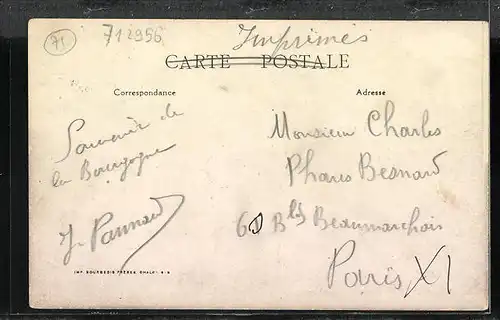 71
712956
Imprimés
CARTE POSTALE
Correspondance
Adresse
Souvenir de
la Bourgogne
Monsieur Charles
Phares Besnard
60 Bld Beaumarchais
Paris XI
IMP. BOURGEOIS FRÈRES CHALN-S-S